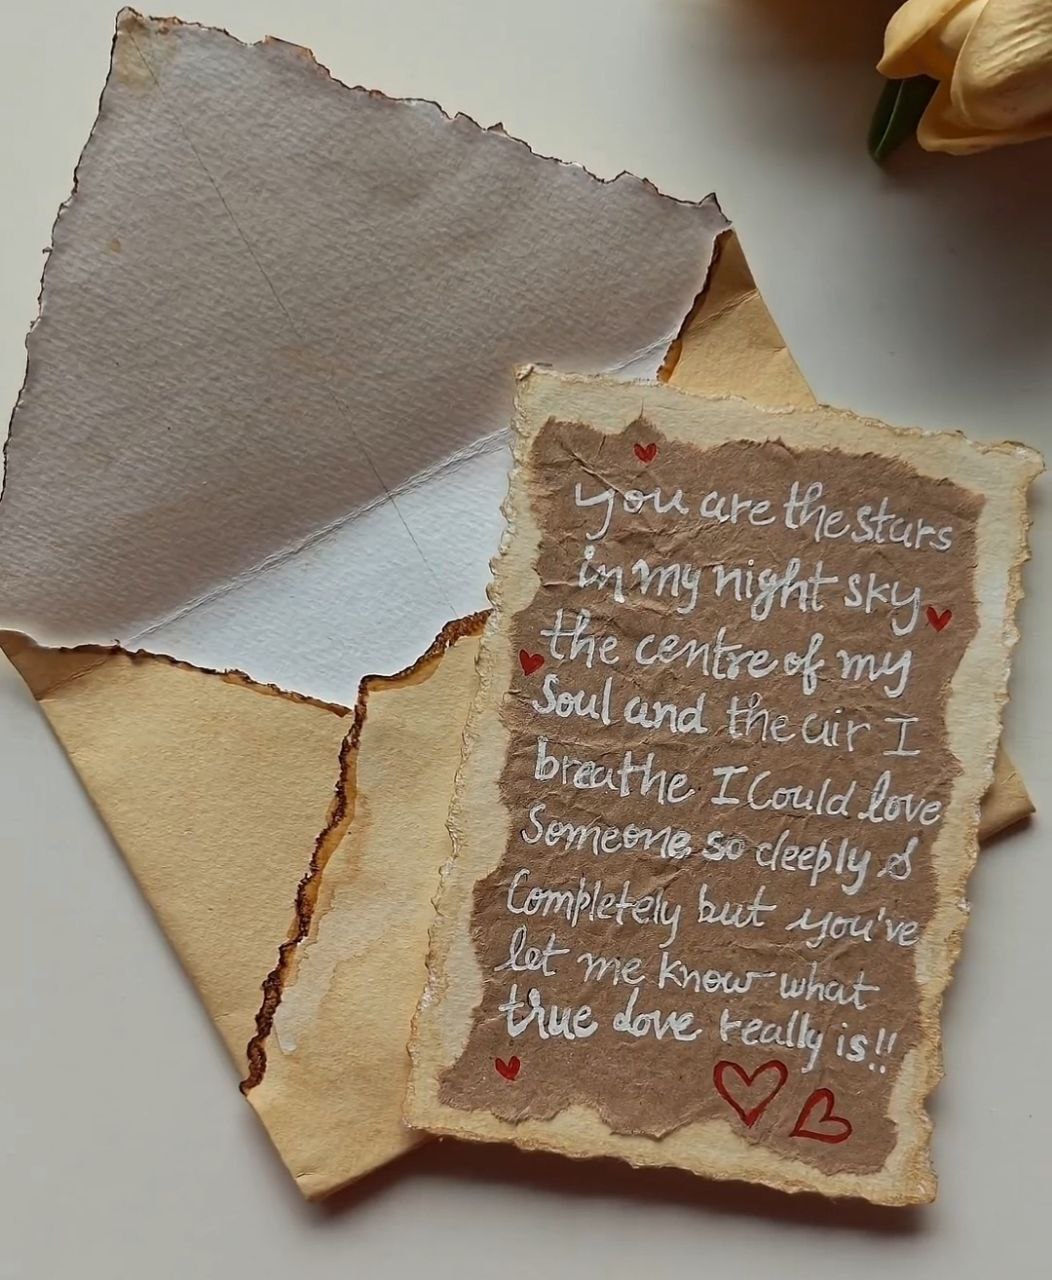 you are the stars
in my night sky
the centre of my
Soul and the air I
breathe I Could love
Someone so deeply &
Completely but you've
let me know what
true love really is!!